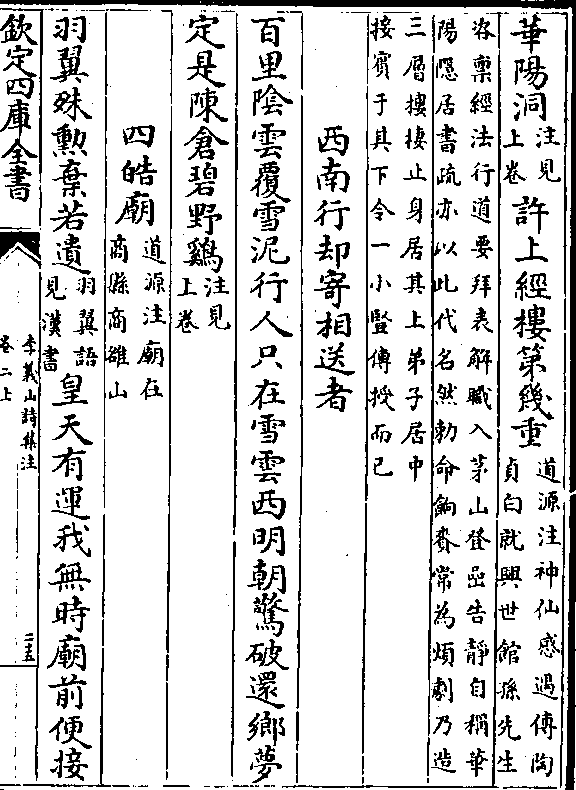 華陽洞注見上卷許上經樓第幾重道源注神仙感遇傳陶貞白就興世館孫先生
咨稟經法行道要拜表解職入茅山登嵒告靜自稱華陽隱居書疏亦以此代名然勅命餉賚常為煩劇乃造
三層樓棲止身居其上弟子居中接賓于其下令一小豎傳授而已
西南行却寄相送者
百里陰雲覆雪泥行人只在雪雲西明朝驚破還鄉夢
定是陳倉碧野鷄注見上卷
四皓廟道源注廟在商縣商雒山
羽翼殊勲棄若遺羽翼語見漢書皇天有運我無時廟前便接
欽定四庫全書
李義山詩集注
卷二上
二五